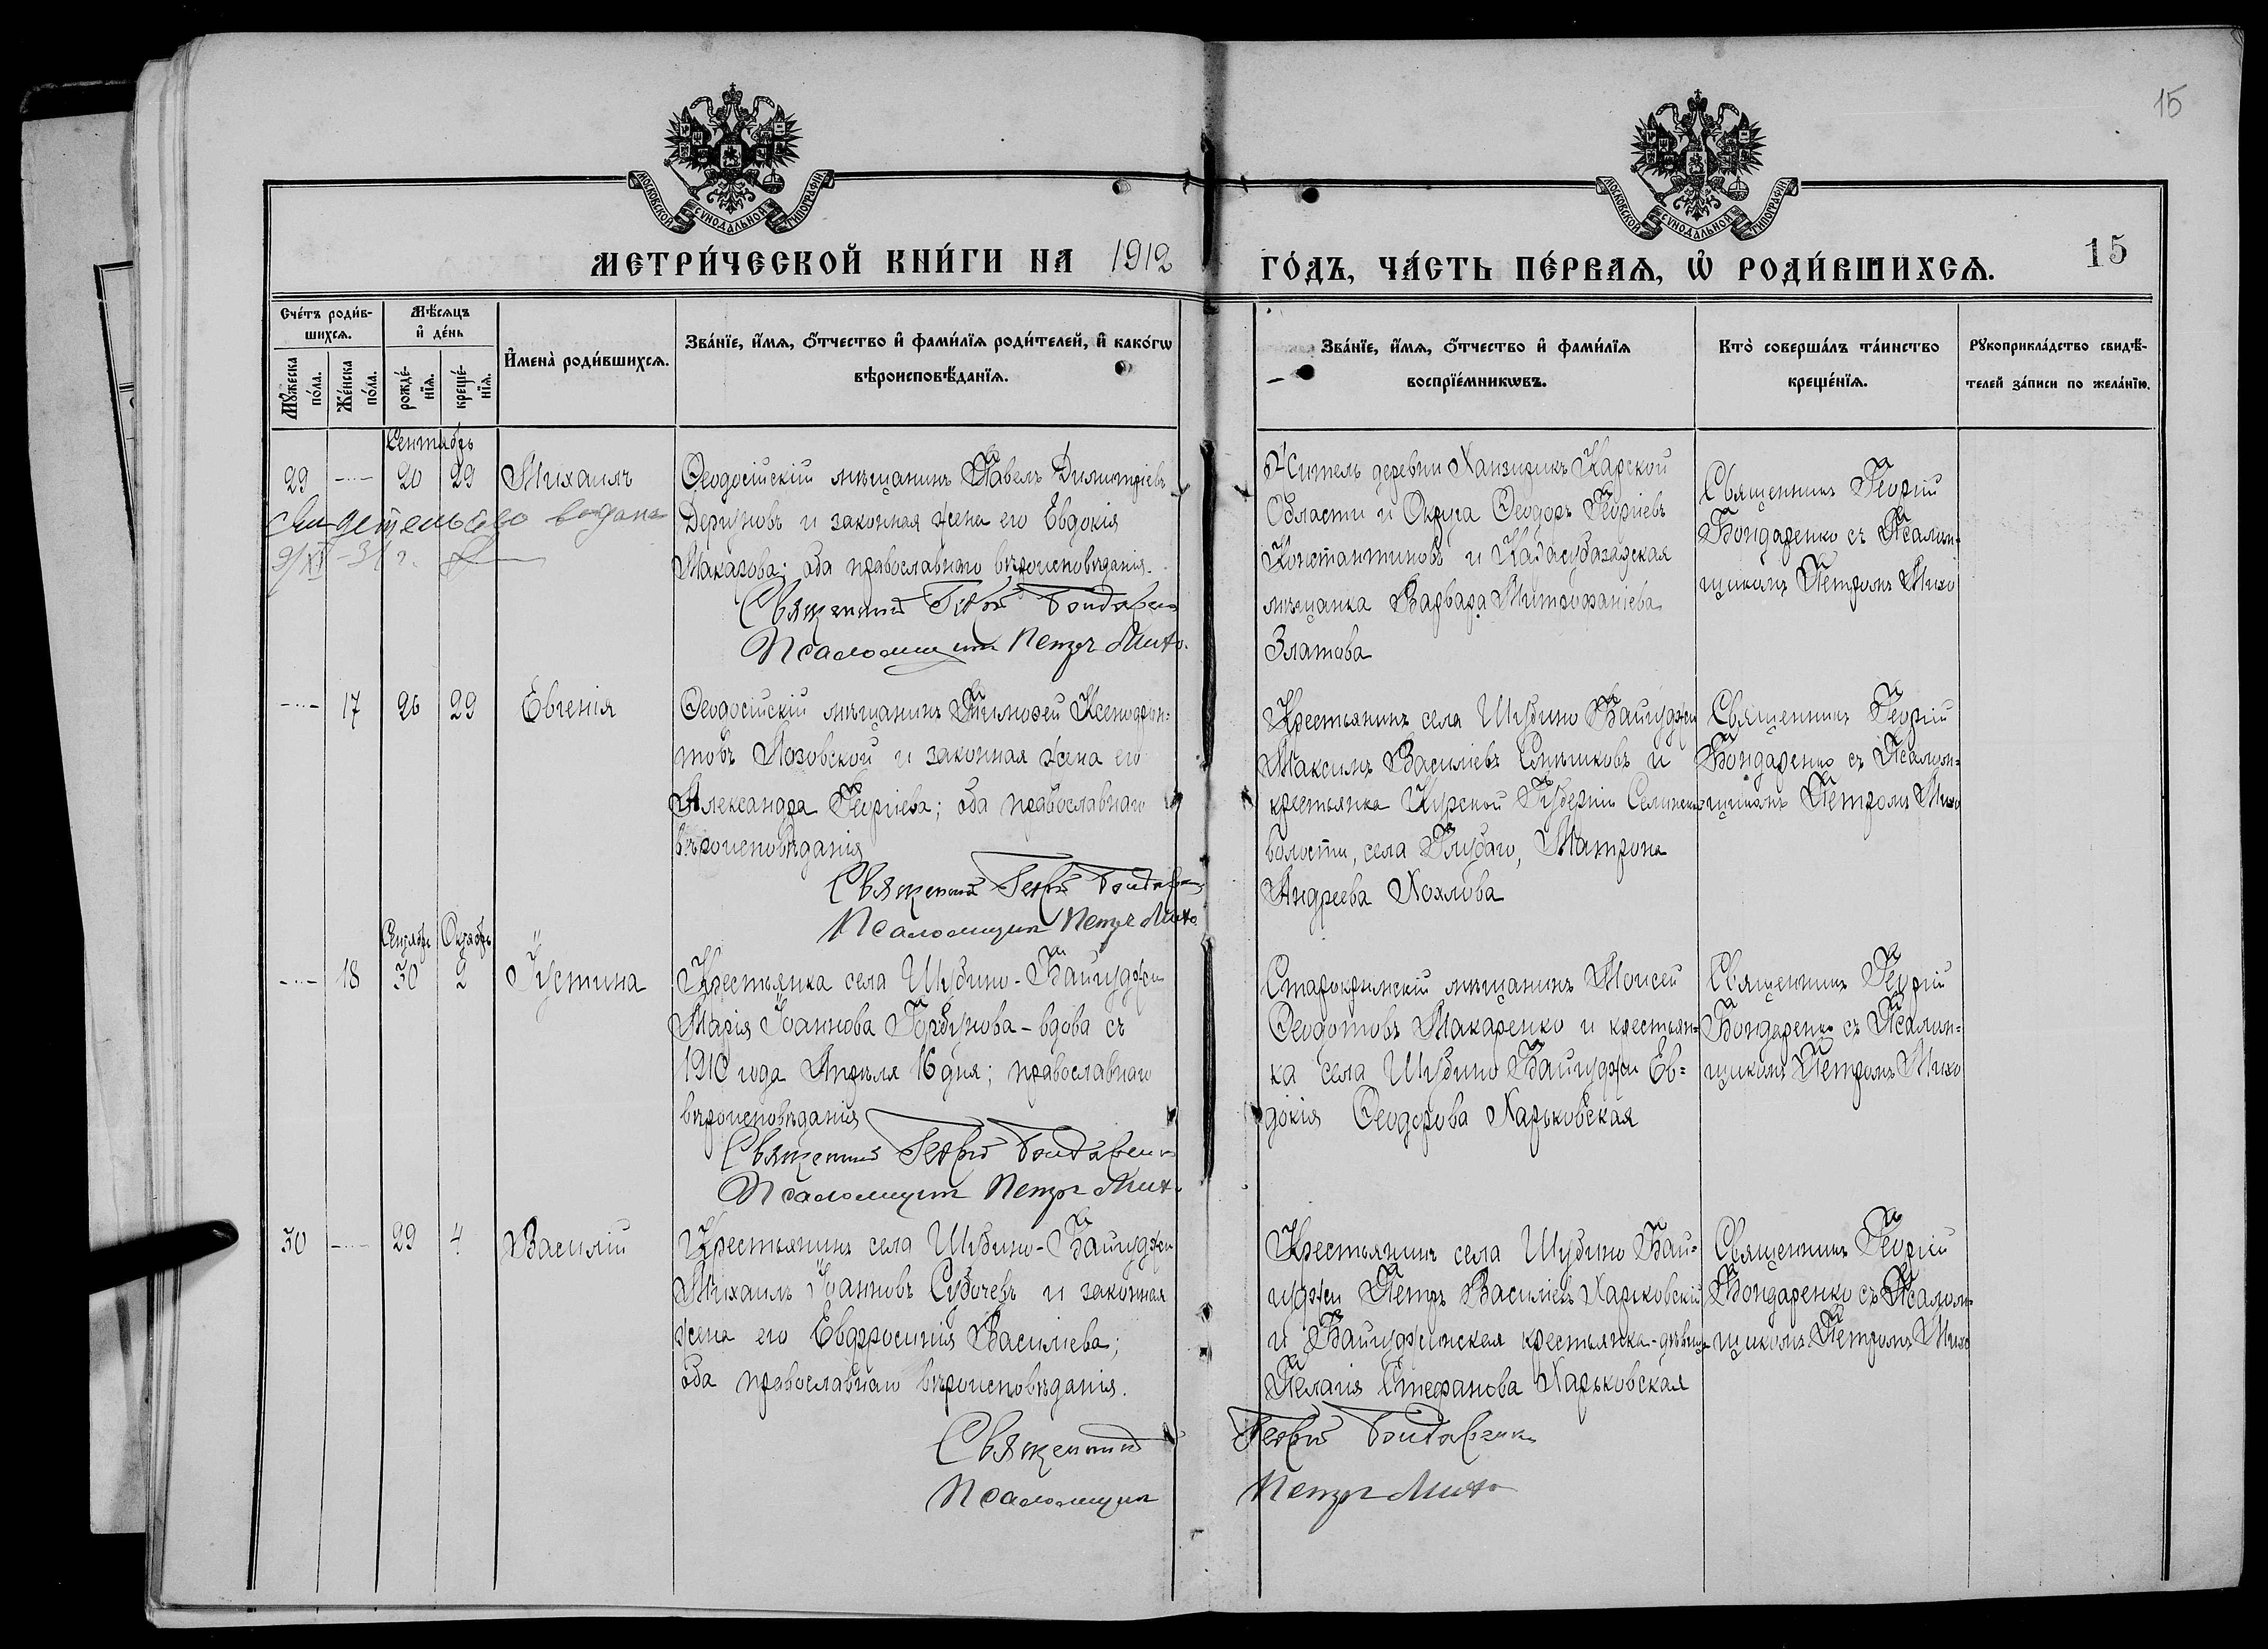 15
МОСКОВСКОЙ СУНОДАЛЬНОЙ ТИПОГРАФІИ
МОСКОВСКОЙ СУНОДАЛЬНОЙ ТИПОГРАФІИ
МЕТРИ́ЧЕСКОЙ КНИ́ГИ НА 1912
ГО́ДЪ, ЧА́СТЬ ПЕ́РВАЯ, Ѡ РОДИ́ВШИХСЯ.
15
Сче́тъ роди́в-
шихся.
Мѣ́сяцъ
и де́нь
Му́жеска
по́ла.
Же́нска
по́ла.
рожде́-
нїя.
креще́-
нїя.
Имена̀ роди́вшихся.
Зва́нїе, и́мя, о́тчество и фами́лїя роди́телей, и како́гѡ
вѣроисповѣ́данїя.
Зва́нїе, и́мя, о́тчество и фами́лїя
воспрїе́мникѡвъ.
Кто̀ соверша́лъ та́инство
креще́нїя.
Рꙋкоприкла́дство свидѣ́-
телей за́писи по жела́нїю.
Сентябрь
29 -··- 20 29 Михаилъ
Свидетельство выдано
9/XI-31 г.
Ѳеодосійскій мѣщанинъ Павелъ Димитріевъ
Дергуновъ и законная жена его Евдокія
Макарова; оба православнаго вѣроисповѣданія.
Священникъ Георгій Бондаренко
Псаломщикъ Петръ Михо
Житель деревни Ханзирикъ Карской
Области и Округа Ѳеодоръ Георгіевъ
Константиновъ и Карасубазарская
мѣщанка Варвара Митрофаніева
Златова
Священникъ Георгій
Бондаренко съ Псалом-
щикомъ Петромъ Михо
-··- 17 26 29 Евгенія
Ѳеодосійскій мѣщанинъ Тимоѳей Ксенофон-
товъ Лозовской и законная жена его
Александра Георгіева; оба православнаго
вѣроисповѣданія
Священникъ Георгій Бондаренко
Псаломщикъ Петръ Михо
Крестьянинъ села Шубино Байгуджи
Максимъ Василіевъ и
крестьянка Курской Губерніи
волости, села Матрона
Андреева Хохлова
Священникъ Георгій
Бондаренко съ Псалом-
щикомъ Петромъ Михо
Сентябрь Октябрь
-··- 18 30 2 Іустина
Крестьянка села Шубино-Байгуджи
Марія Іоаннова Горбунова - вдова съ
1910 года Апрѣля 16 дня; православнаго
вѣроисповѣданія
Священникъ Георгій Бондаренко
Псаломщикъ Петръ Михо
Старокрымскій мѣщанинъ Моисей
Ѳеодотовъ Макаренко и крестьян-
ка села Шубино Байгуджи Ев-
докія Ѳеодорова Харьковская
Священникъ Георгій
Бондаренко съ Псалом-
щикомъ Петромъ Михо
30 -··- 29 4 Василій
Крестьянинъ села Шубино-Байгуджи
Михаилъ Іоанновъ Субочевъ и законная
жена его Евфросинія Василіева;
оба православнаго вѣроисповѣданія.
Крестьянинъ села Шубино Бай-
гуджи Петръ Василіевъ Харьковскій
и Байгуджинская крестьянка-дѣвица
Пелагія Стефанова Харьковская
Священникъ Георгій
Бондаренко съ Псалом-
щикомъ Петромъ Михо
Священникъ Георгій Бондаренко
Псаломщикъ Петръ Михо